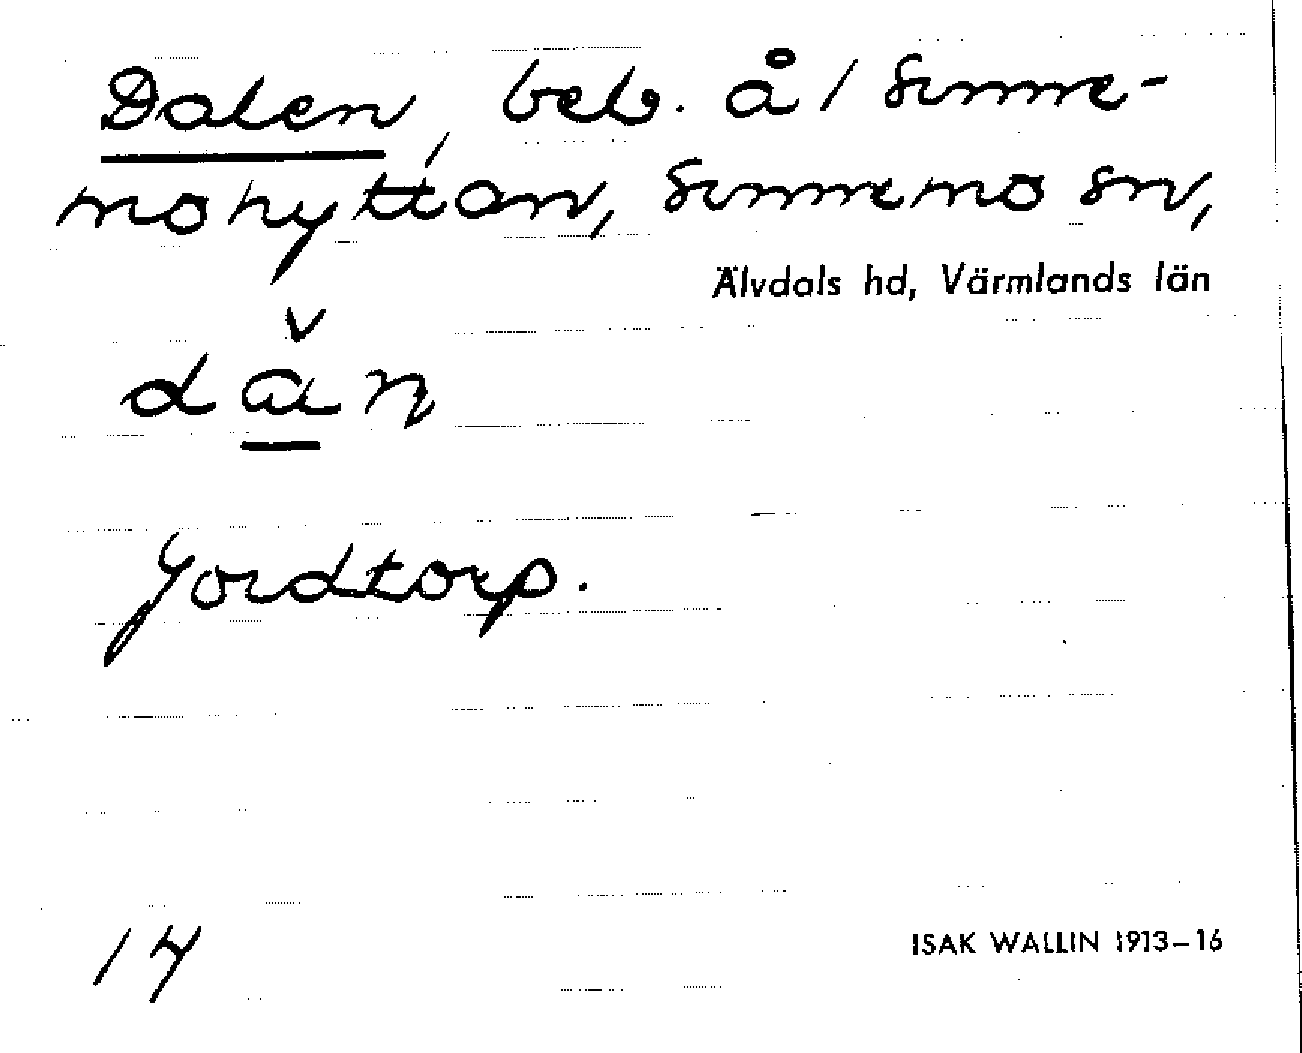 Dalen, beb. å / Sunne-
mohyttan, Sunnemo sn,
Älvdals hd, Värmlands län
Jordtorp.
14
ISAK WALLIN 1913–16